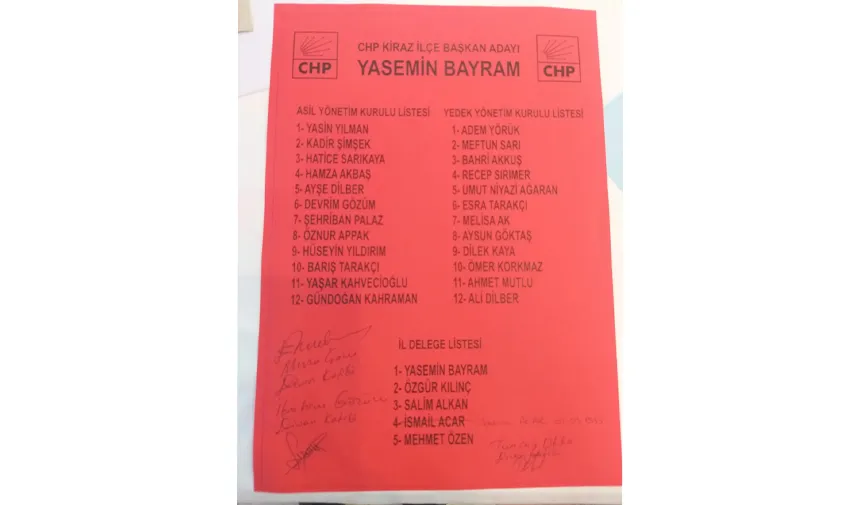 CHP KİRAZ İLÇE BAŞKAN ADAYI
YASEMİN BAYRAM
CHP
CHP
ASİL YÖNETİM KURULU LİSTESİ
1- YASİN YILMAN
2- KADİR ŞİMŞEK
3- HATİCE SARIKAYA
4- HAMZA AKBAŞ
5- AYŞE DİLBER
6- DEVRİM GÖZÜM
7- ŞEHRİBAN PALAZ
8- ÖZNUR APPAK
9- HÜSEYİN YILDIRIM
10- BARIŞ TARAKÇI
11- YAŞAR KAHVECİOĞLU
12- GÜNDOĞAN KAHRAMAN
YEDEK YÖNETİM KURULU LİSTESİ
1- ADEM YÖRÜK
2- MEFTUN SARI
3- BAHRİ AKKUŞ
4- RECEP SIRIMER
5- UMUT NİYAZİ AĞARAN
6- ESRA TARAKÇI
7- MELİSA AK
8- AYSUN GÖKTAŞ
9- DİLEK KAYA
10- ÖMER KORKMAZ
11- AHMET MUTLU
12- ALİ DİLBER
İL DELEGE LİSTESİ
1- YASEMİN BAYRAM
2- ÖZGÜR KILINÇ
3- SALİM ALKAN
4- İSMAİL ACAR
5- MEHMET ÖZEN
Divan Katibi
Divan Katibi